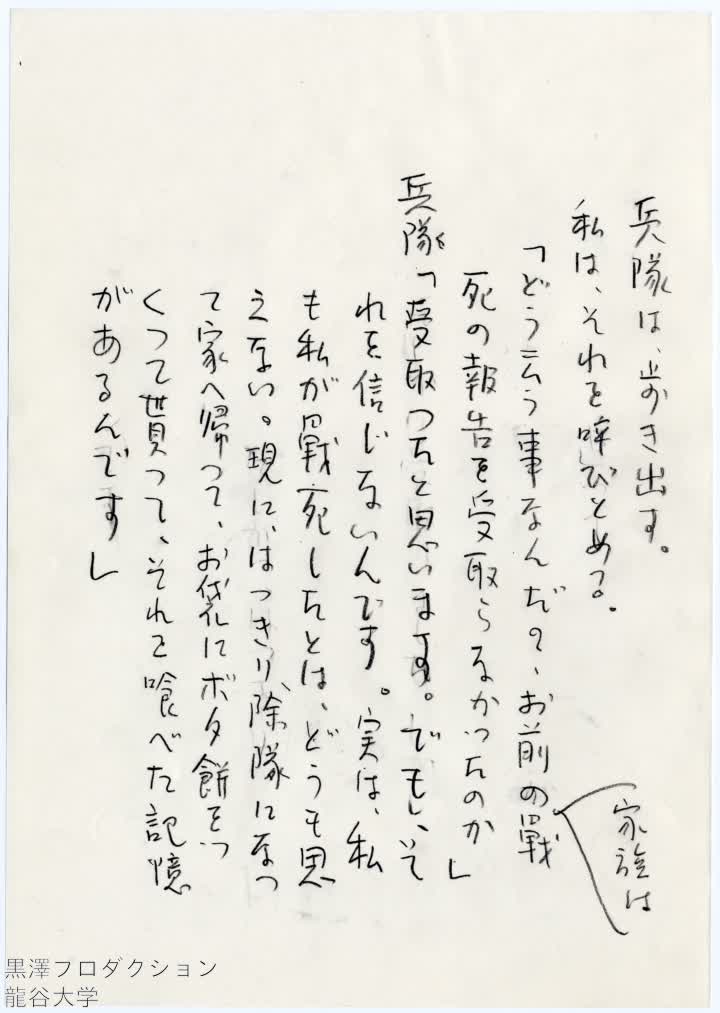 兵隊は、歩き出す。
私は、それを呼びとめる。
「どう云う事なんだ？、お前の戰
家族は
死の報告を受取らなかったのか」
兵隊「受取ったと思います。でも、そ
れを信じないんです。実は、私
も私が戰死したとは、どうも思
えない。現に、はっきり除隊になっ
て家へ帰って、お袋にボタ餅をつ
くって貰って、それを喰べた記憶
があるんです」
黒澤プロダクション
龍谷大学